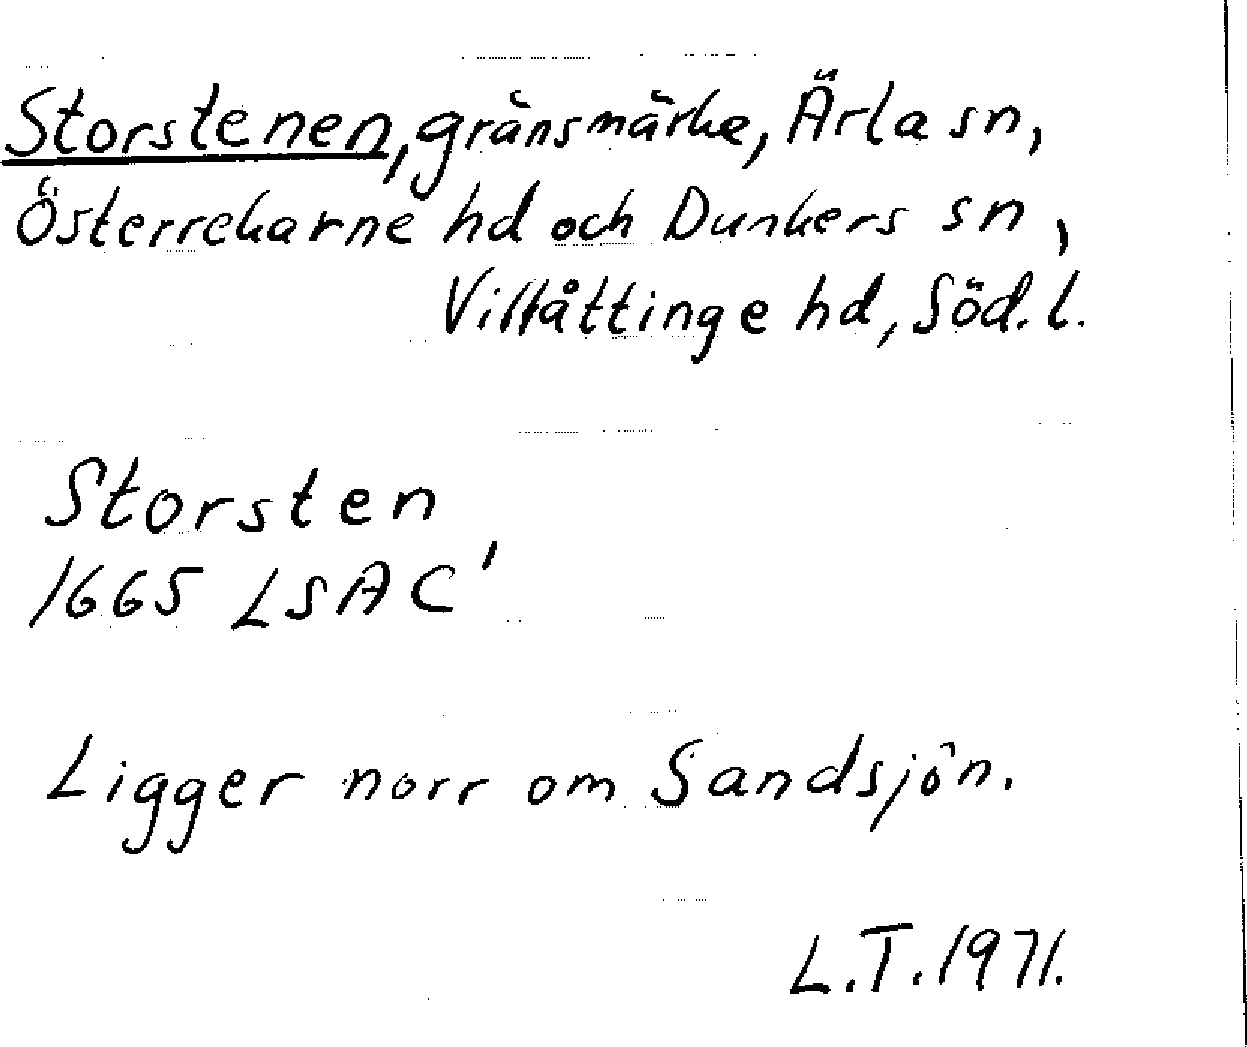 Storstenen, gränsmärke, Ärla sn,
Österrekarne hd och Dunkers sn,
Villåttinge hd, Söd. l.
Storsten
1665 LSAC'
Ligger norr om Sandsjön.
L.T. 1971.